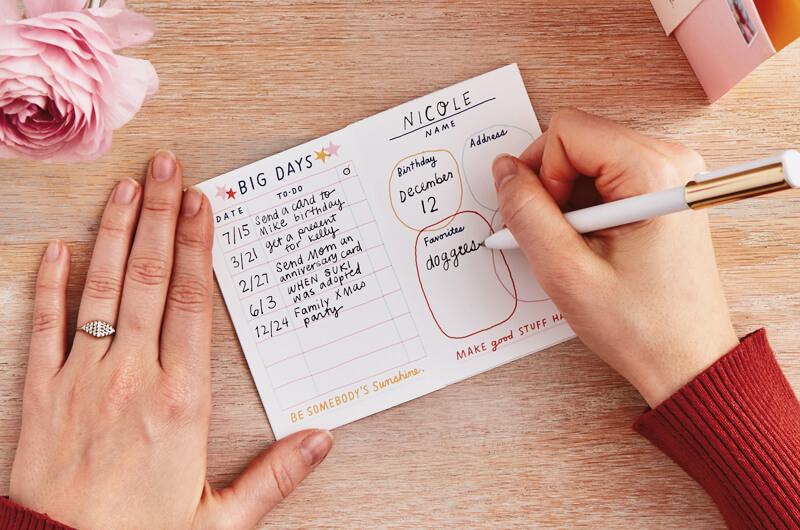 BIG DAYS
DATE TO-DO
7/15 Send a card to
Mike birthday
3/21 get a present
for Kelly
2/27 Send Mom an
anniversary card
6/3 WHEN SUKI
was adopted
12/24 Family XMas
party
BE SOMEBODY'S Sunshine.
NICOLE
NAME
Birthday
December
12
Address
Favorites
doggies
MAKE good STUFF